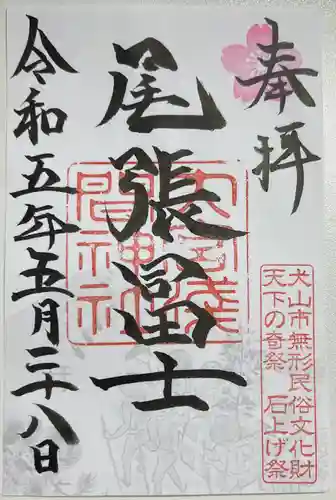 奉拝
尾張冨士
大宮浅
間神社
令和五年五月二十八日
犬山市無形民俗文化財
天下の奇祭 石上げ祭